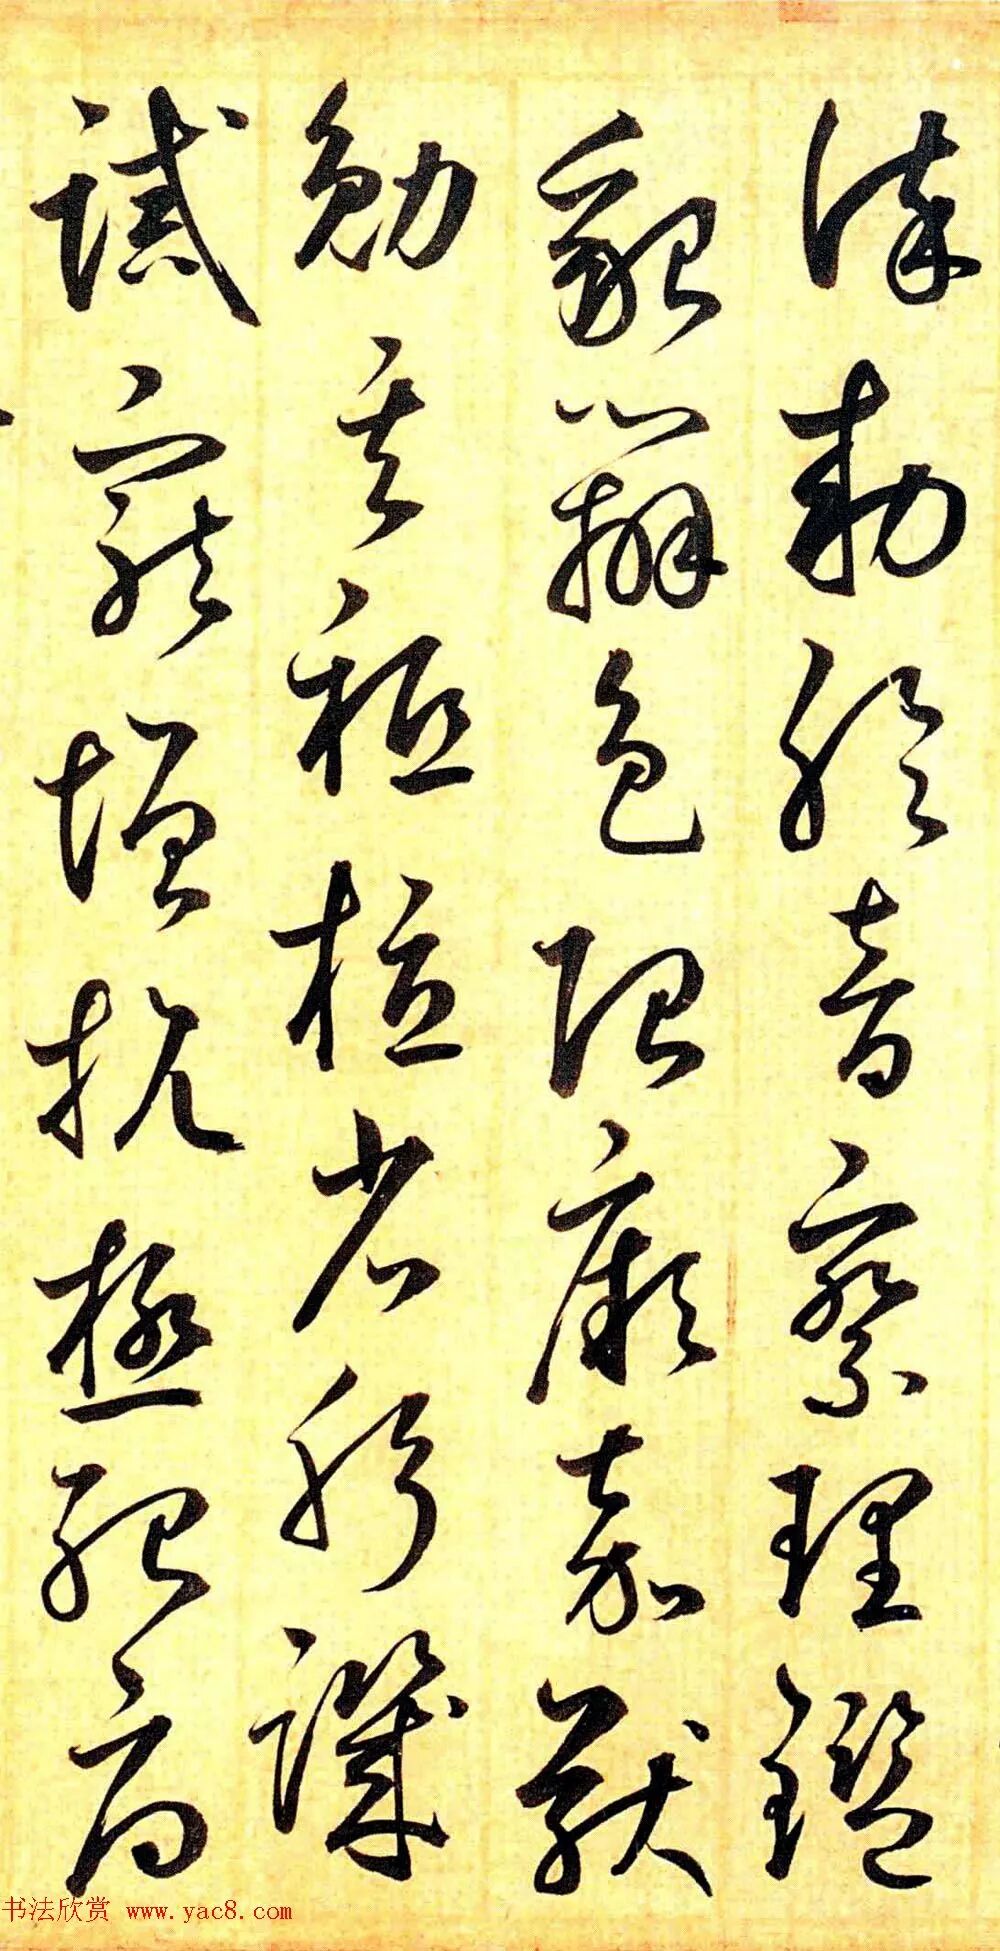 謹勅聆音察理鑑
貌辯色貽厥嘉猷
勉其祗植省躬譏
誡寵增抗極殆辱
书法欣赏 www.yac8.com